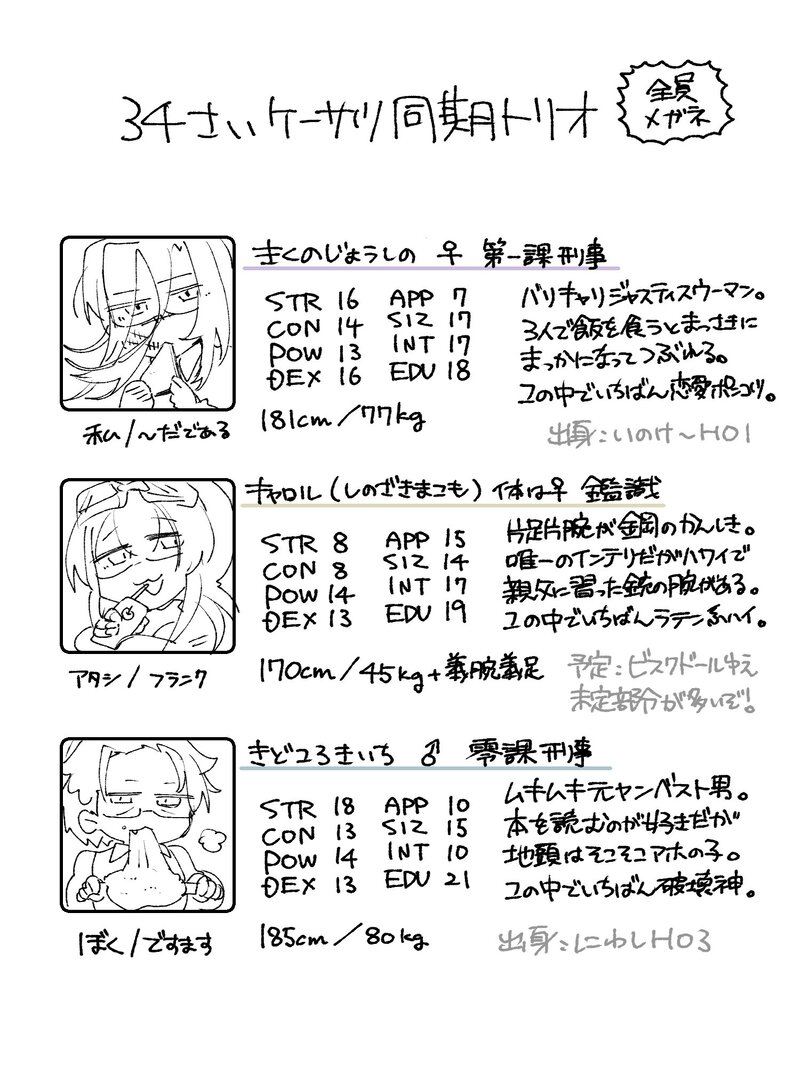 34さいケーサツ同期トリオ
全員
メガネ
きくのじょうしの ♀ 第一課刑事
STR 16 APP 7
CON 14 SIZ 17
POW 13 INT 17
DEX 16 EDU 18
181cm/77kg
私/〜だである
バリキャリジャスティスウーマン。
3人で飯を食うとまっさきに
まっかになってつぶれる。
この中でいちばん恋愛ポンコツ。
出身:いのけ〜HO1
キャロル(しのざきまこも)体は♀ 鑑識
STR 8 APP 15
CON 8 SIZ 14
POW 14 INT 17
DEX 13 EDU 19
170cm/45kg+義腕義足
アタシ/フランク
片足片腕が金岡のかんしき。
唯一のインテリだがハワイで
親父に習った銃の腕がある。
この中でいちばんラテン系ハイ。
予定:ビスクドールゆえ
未定部分が多いぞ!
きどころきいち ♂ 零課刑事
STR 18 APP 10
CON 13 SIZ 15
POW 14 INT 10
DEX 13 EDU 21
185cm/80kg
ぼく/ですます
ムキムキ元ヤンベスト男。
本を読むのが好きだが
地頭はそこそこアホの子。
この中でいちばん破壊神。
出身:にわしHO3